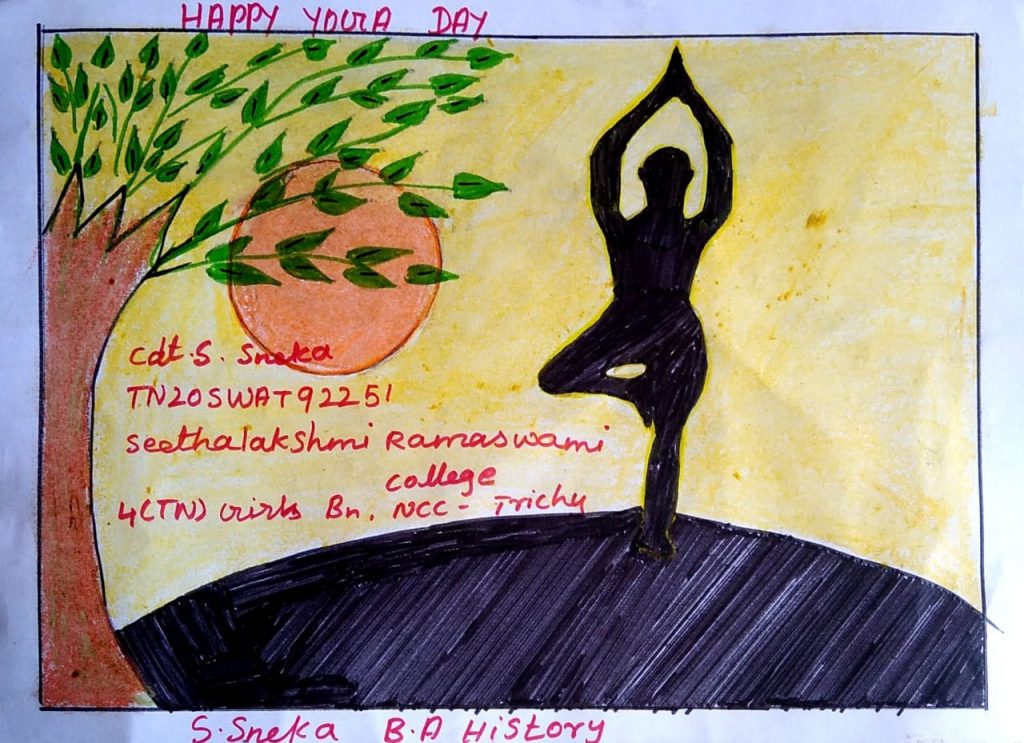 HAPPY YOGA DAY
Cdt. S. Sneka
TN20SWAT92251
Seethalakshmi Ramaswami
College
4(TN) Girls Bn. NCC - Trichy
S.Sneka B.A History